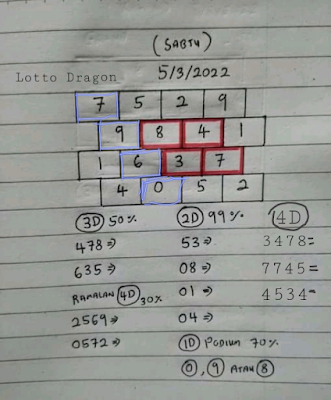 (SABTU)
Lotto Dragon 5/3/2022
7 5 2 9
9 8 4 1
1 6 3 7
4 0 5 2
3D 50% 2D 99% 4D
478⇒ 53⇒ 3478=
635⇒ 08⇒ 7745=
RAMALAN 4D 30% 01⇒ 4534-
2569⇒ 04⇒
0572⇒ 1D PODIUM 70%
0, 9 ATAU 8